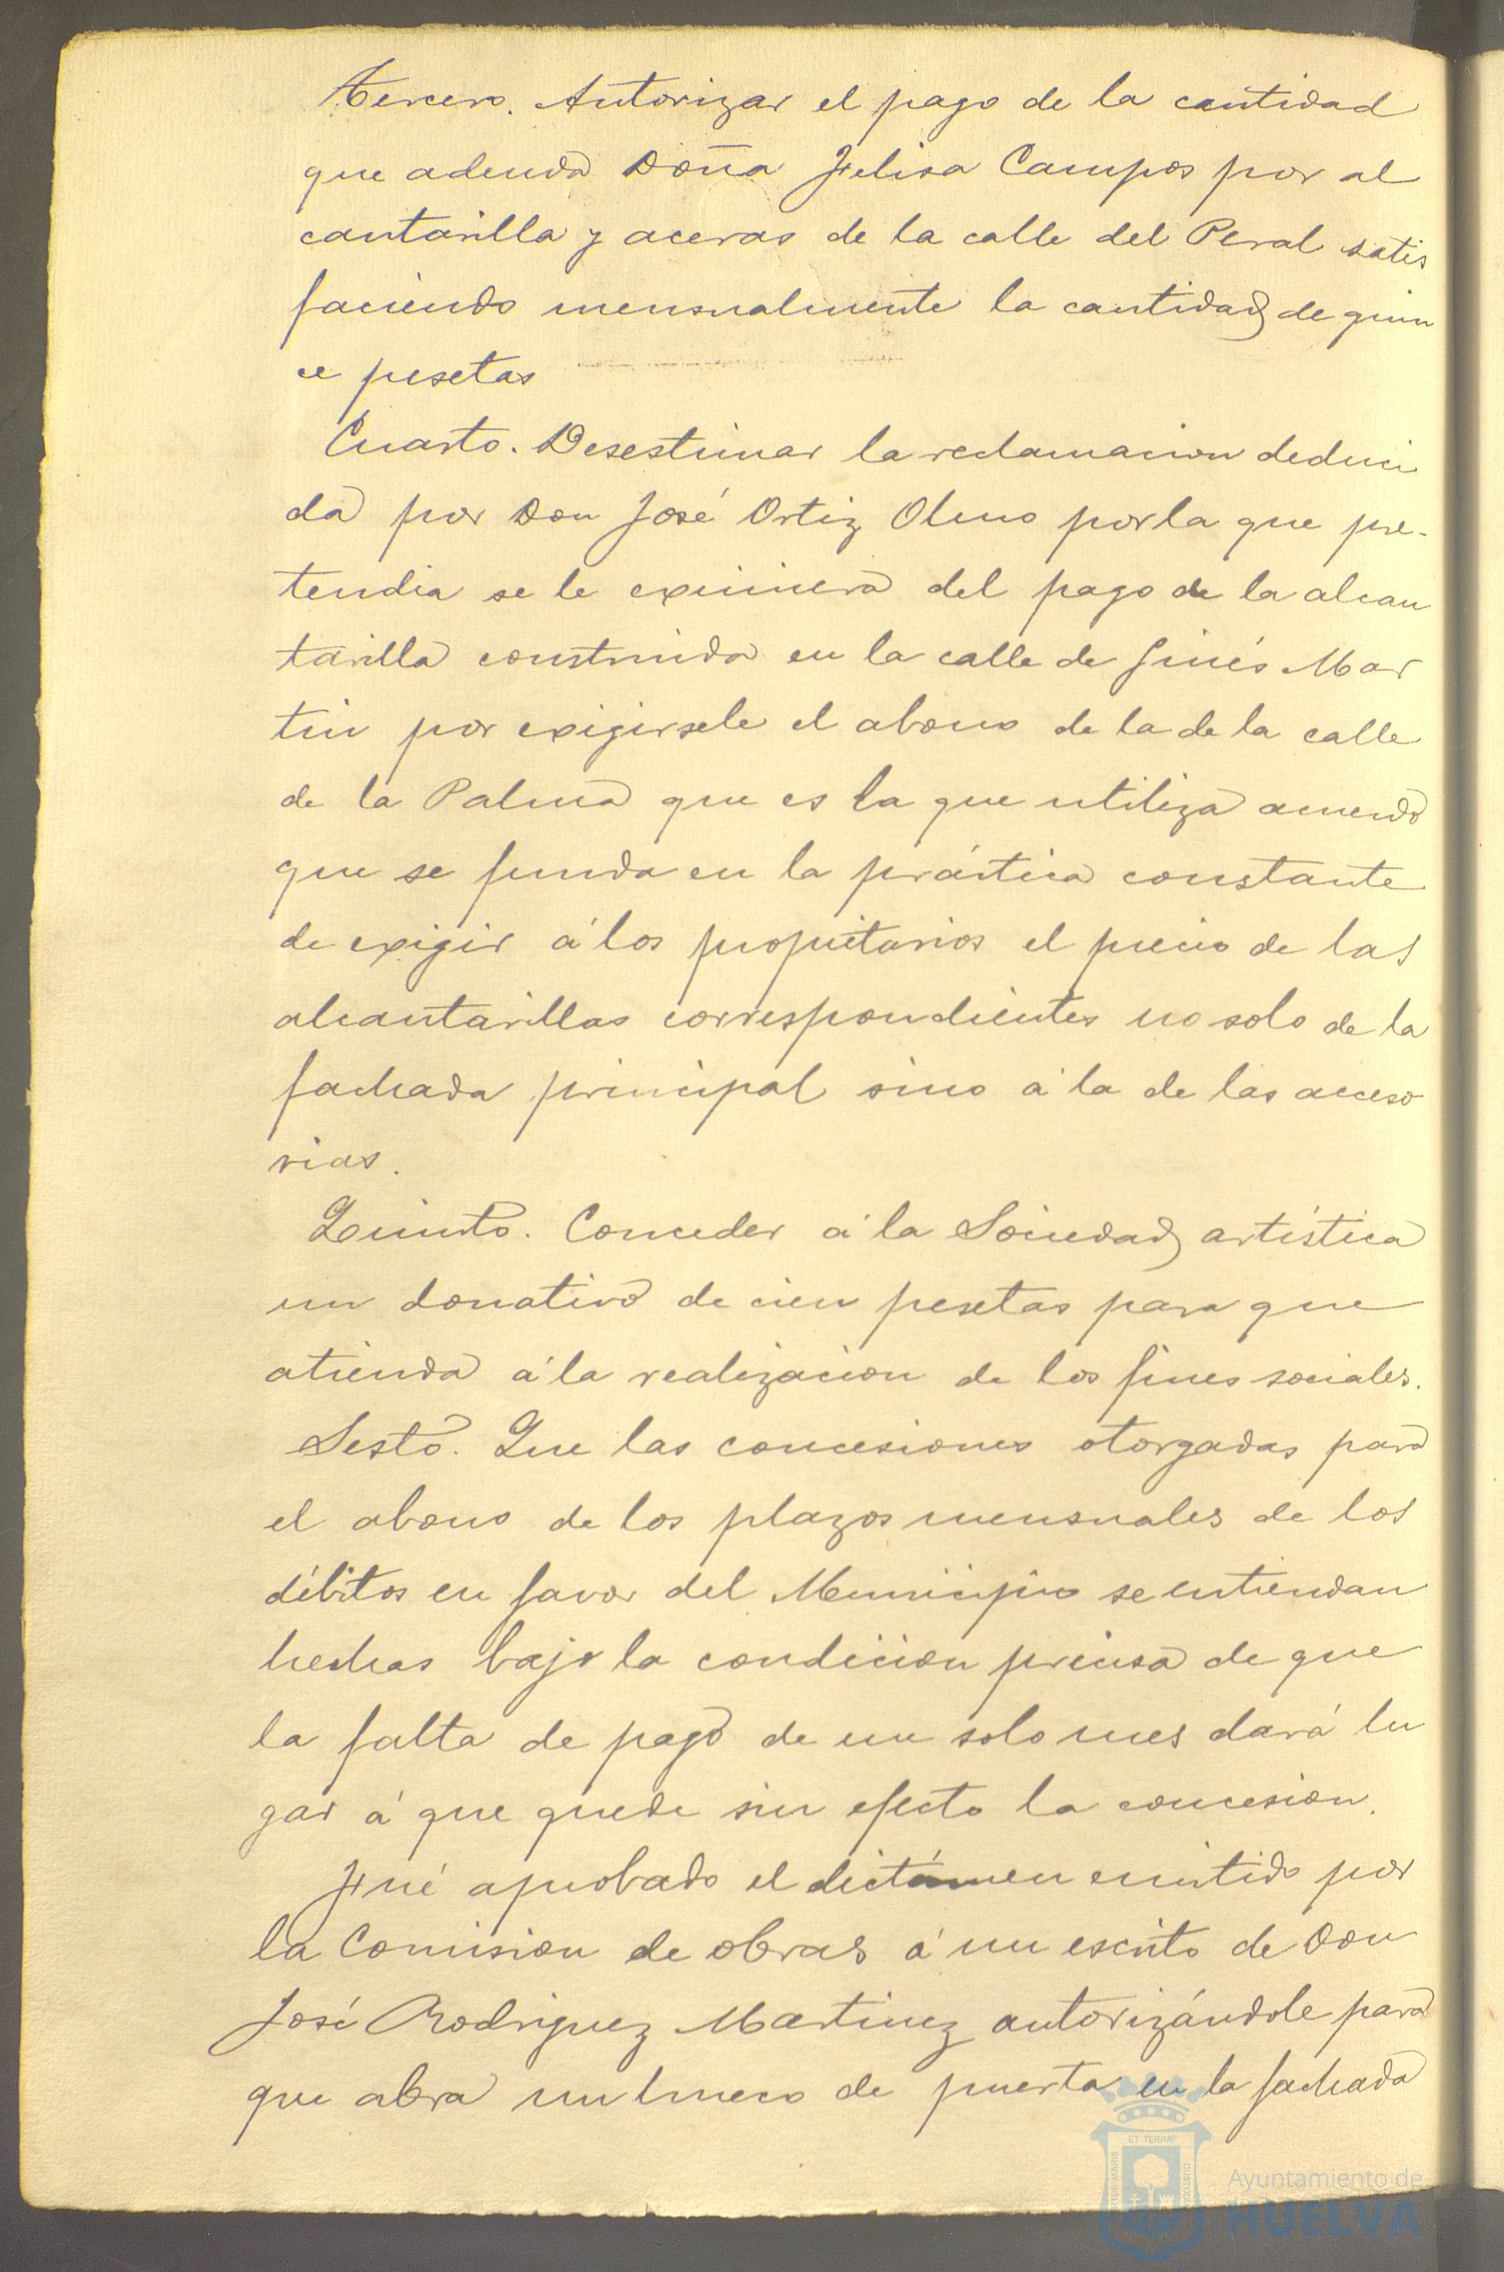 Tercero. Autorizar el pago de la cantidad
que adeuda Doña Felisa Campos por al
cantarilla y aceras de la calle del Peral satis
faciendo mensualmente la cantidad de quin
ce pesetas
Cuarto. Desestimar la reclamacion deduci
da por Don José Ortiz Olmo por la que pre-
tendia se le eximiera del pago de la alcan
tarilla construida en la calle de Ginés Mar
tin por exigirsele el abono de la de la calle
de la Palma que es la que utiliza acuerdo
que se funda en la práctica constante
de exigir á los propietarios el precio de las
alcantarillas correspondientes no solo de la
fachada principal sino á la de las acceso
rias.
Quinto. Conceder á la Sociedad artística
un donativo de cien pesetas para que
atienda á la realizacion de los fines sociales.
Sesto. Que las concesiones otorgadas para
el abono de los plazos mensuales de los
débitos en favor del Municipio se entiendan
hechas bajo la condicion precisa de que
la falta de pago de un solo mes dará lu
gar á que quede sin efecto la concesion.
Fué aprobado el dictámen emitido por
la Comision de obras á un escrito de Don
José Rodriguez Martinez autorizándole para
que abra un hueco de puerta en la fachada
ET TERRAE
Ayuntamiento de
HUELVA